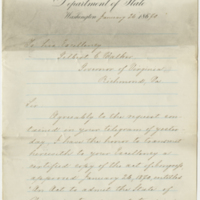 Department of State
Washington January 26, 1870
To His Excellency
Gilbert C. Walker
Governor of Virginia
Richmond, Va
Sir
Agreeably to the request con
tained in your telegram of yester
day, I have the honor to transmit
herewith to your Excellency a
certified copy of the act of Congress
approved January 26, 1870, entitled
"An Act to admit the State of